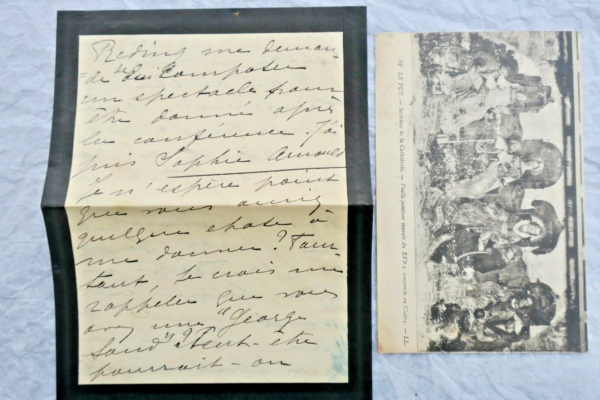 Reding me deman
= de de lui composer
un spectacle pour
être donné après
la conférence. J'ai
pris Sophie Arnould
Je n'espère point
que vous auriez
quelque chose à
me donner? Pour-
tant, je crois me
rappeler que vous
avez une "George
Sand"? Peut-être
pourrait-on
70 LE PUY. — Intérieur de la Cathédrale. — Vieille peinture murale du XVe s., couverte en Cuivre. — LL.